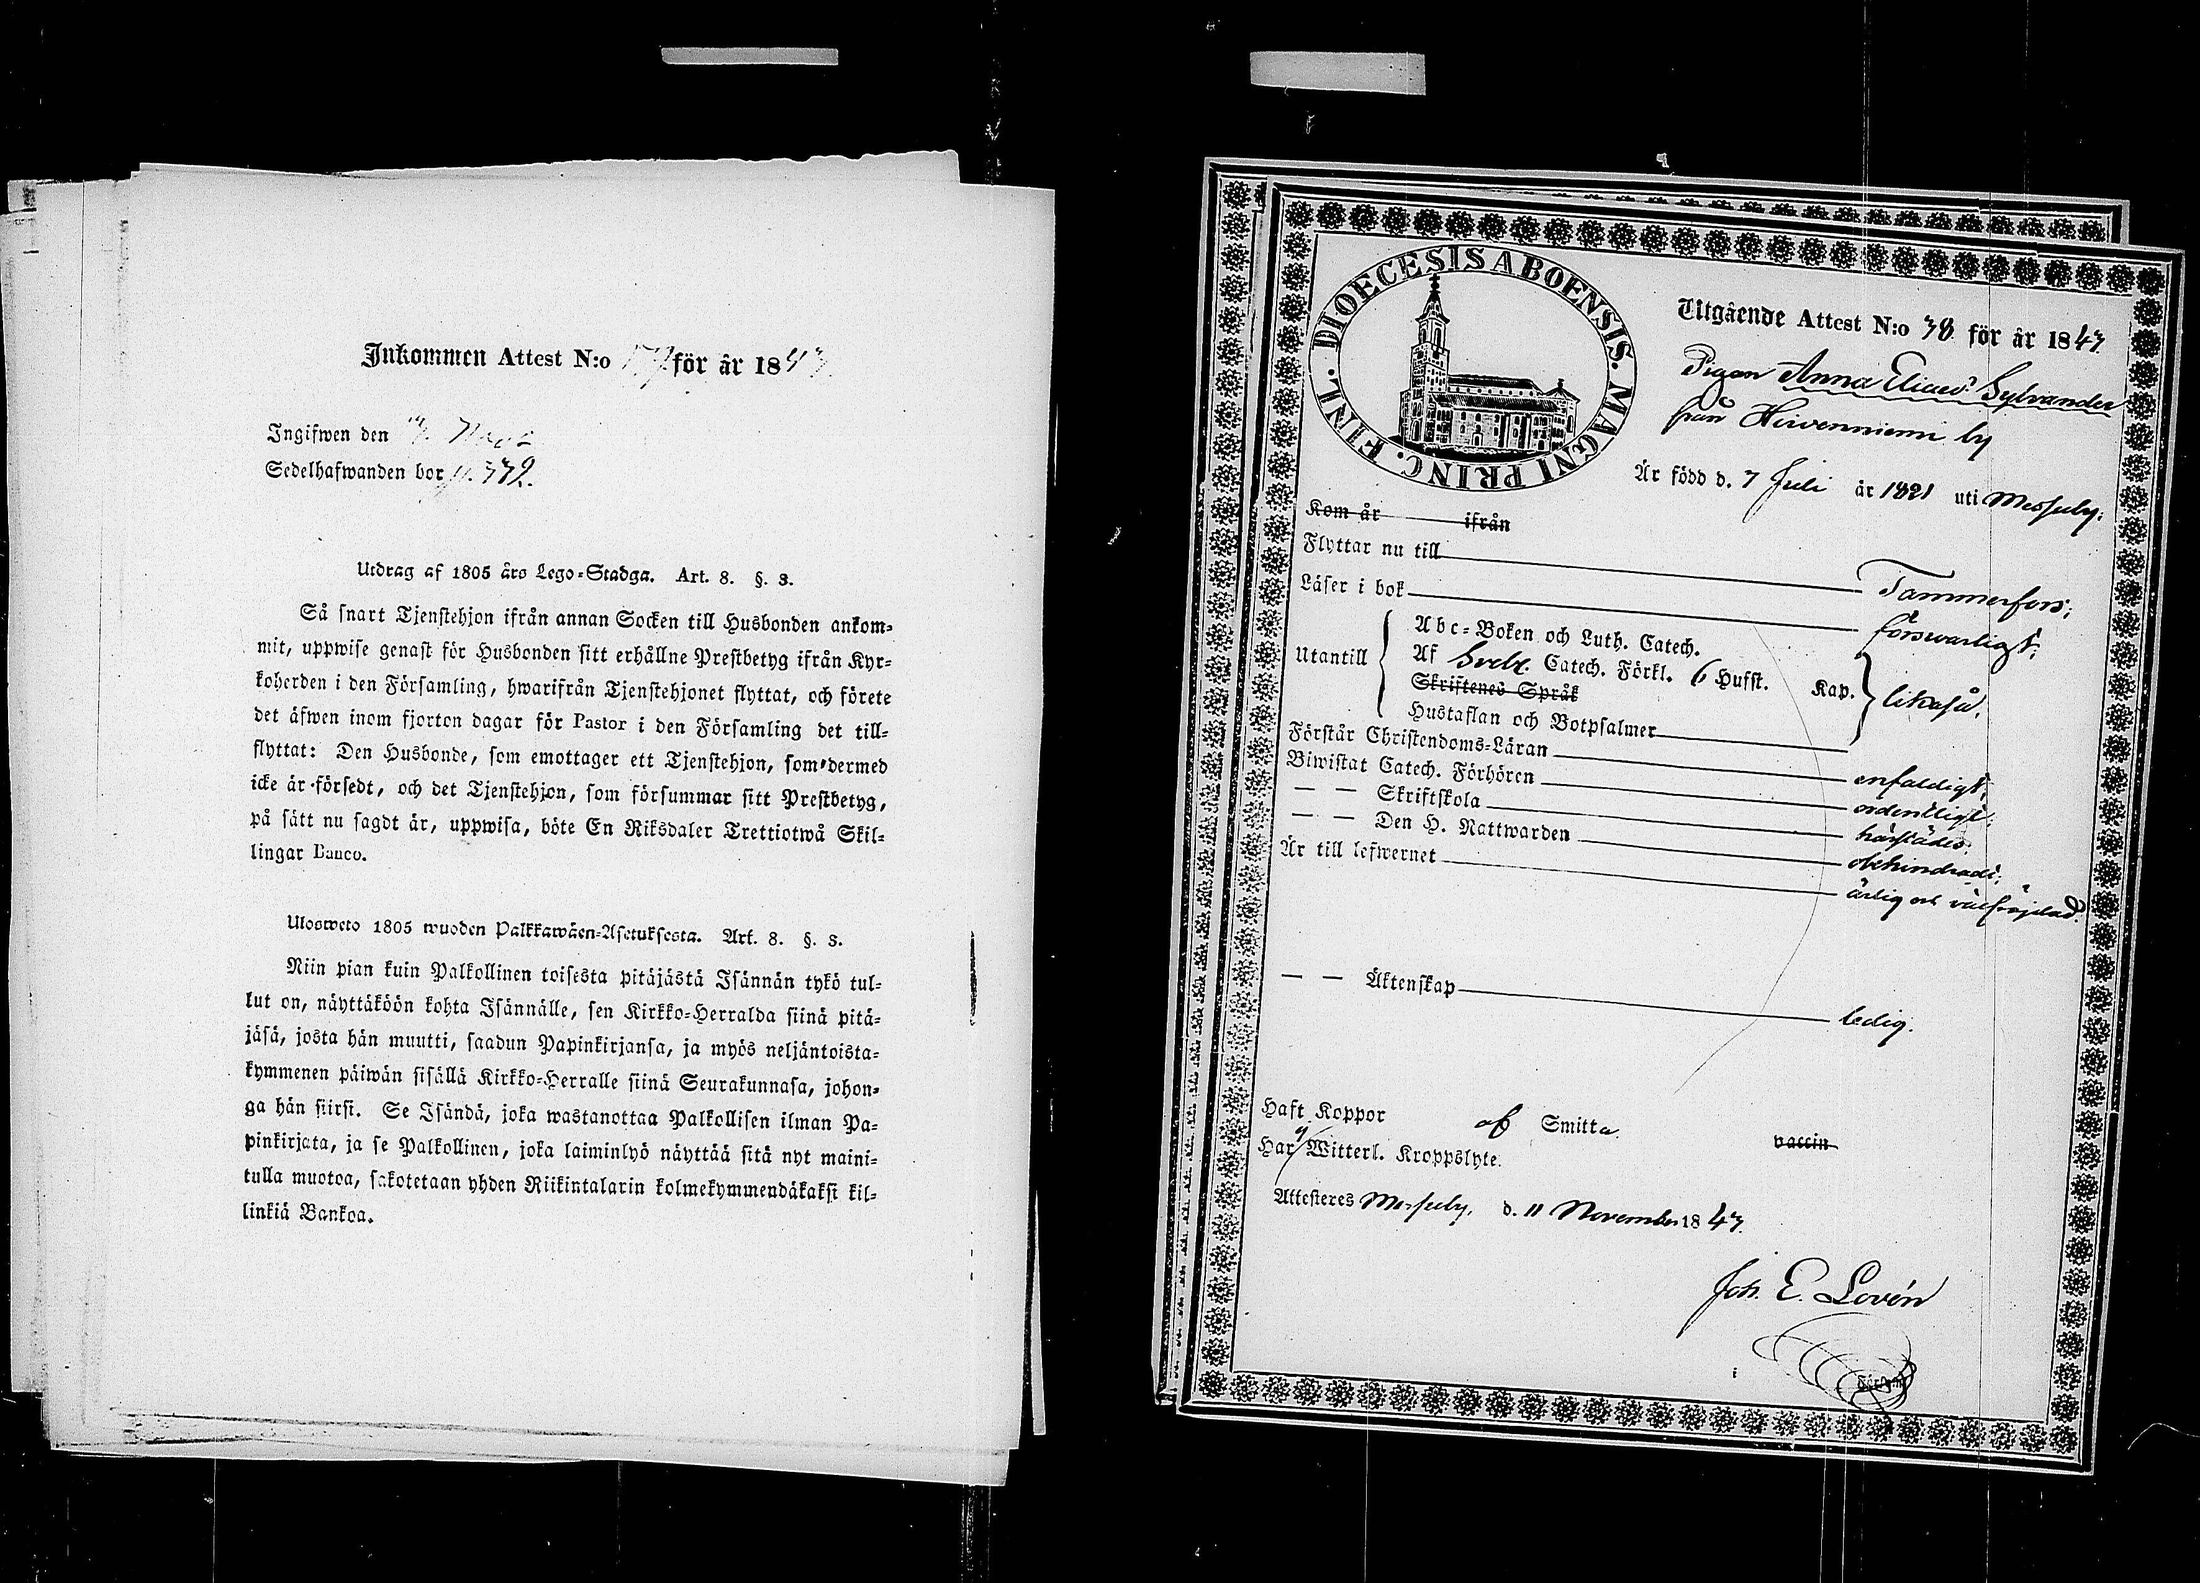 Inkommen Attest N:o för år 1843.
Ingifwen den
Sedelhafwanden bor 332.
Utdrag af 1805 års Lego-Stadga. Art. 8. §. 3.
Så snart Tjenstehjon ifrån annan Socken till Husbonden ankom-
mit, uppwise genast för Husbonden sitt erhållne Prestbetyg ifrån Kyr-
koherden i den Församling, hwarifrån Tjenstehjonet flyttat, och förete
det äfwen inom fjorton dagar för Pastor i den Församling det till-
flyttat: Den Husbonde, som emottager ett Tjenstehjon, som dermed
icke är försedt, och det Tjenstehjon, som försummar sitt Prestbetyg,
på sätt nu sagdt är, uppwisa, böte En Riksdaler Trettiotwå Skil-
lingar Banco.
Ulosweto 1805 wuoden Palkkawäen-Asetuksesta. Art. 8. §. 3.
Niin pian kuin Palkollinen toisesta pitäjästä Isännän tykö tul-
lut on, näyttäköön kohta Isännälle, sen Kirkko-Herralda siinä pitä-
jäsä, josta hän muutti, saadun Papinkirjansa, ja myös neljäntoista-
kymmenen päiwän sisällä Kirkko-Herralle siinä Seurakunnasa, johon-
ga hän siirsi. Se Isändä, joka wastanottaa Palkollisen ilman Pa-
pinkirjata, ja se Palkollinen, joka laiminlyö näyttää sitä nyt maini-
tulla muotoa, sakotetaan yhden Riikintalarin kolmekymmendäkaksi kil-
linkiä Bankoa.
DIOECESIS ABOENSIS. MAGNI PRINC. FINL.
Utgående Attest N:o 38 för år 1843.
Pigan Anna Eliaed:r Sylvander
från Hirvenniemi by
Är född d. 7 Juli år 1821 uti Messuby.
Kom år ifrån
Flyttar nu till Tammerfors;
Läser i bok försvarligt;
Utantill
Abc-Boken och Luth. Catech.
Af Svebel. Catech. Förkl. 6 Hufst. Kap.
Skriftenes Språk
Hustaflan och Botpsalmer
likaså.
Förstår Christendoms-Läran enfaldigt;
Biwistat Catech. Förhören ordentligt;
— — Skriftskola härstädes;
— — Den H. Nattwarden obehindradt;
Är till lefwernet ärlig och välfrejdad.
— — Äktenskap ledig.
Haft Koppor af Smitta. vaccin
Har Witterl. Kroppslyte.
Attesteres Messuby, d. 11 November 1843.
Joh. E. Lovén